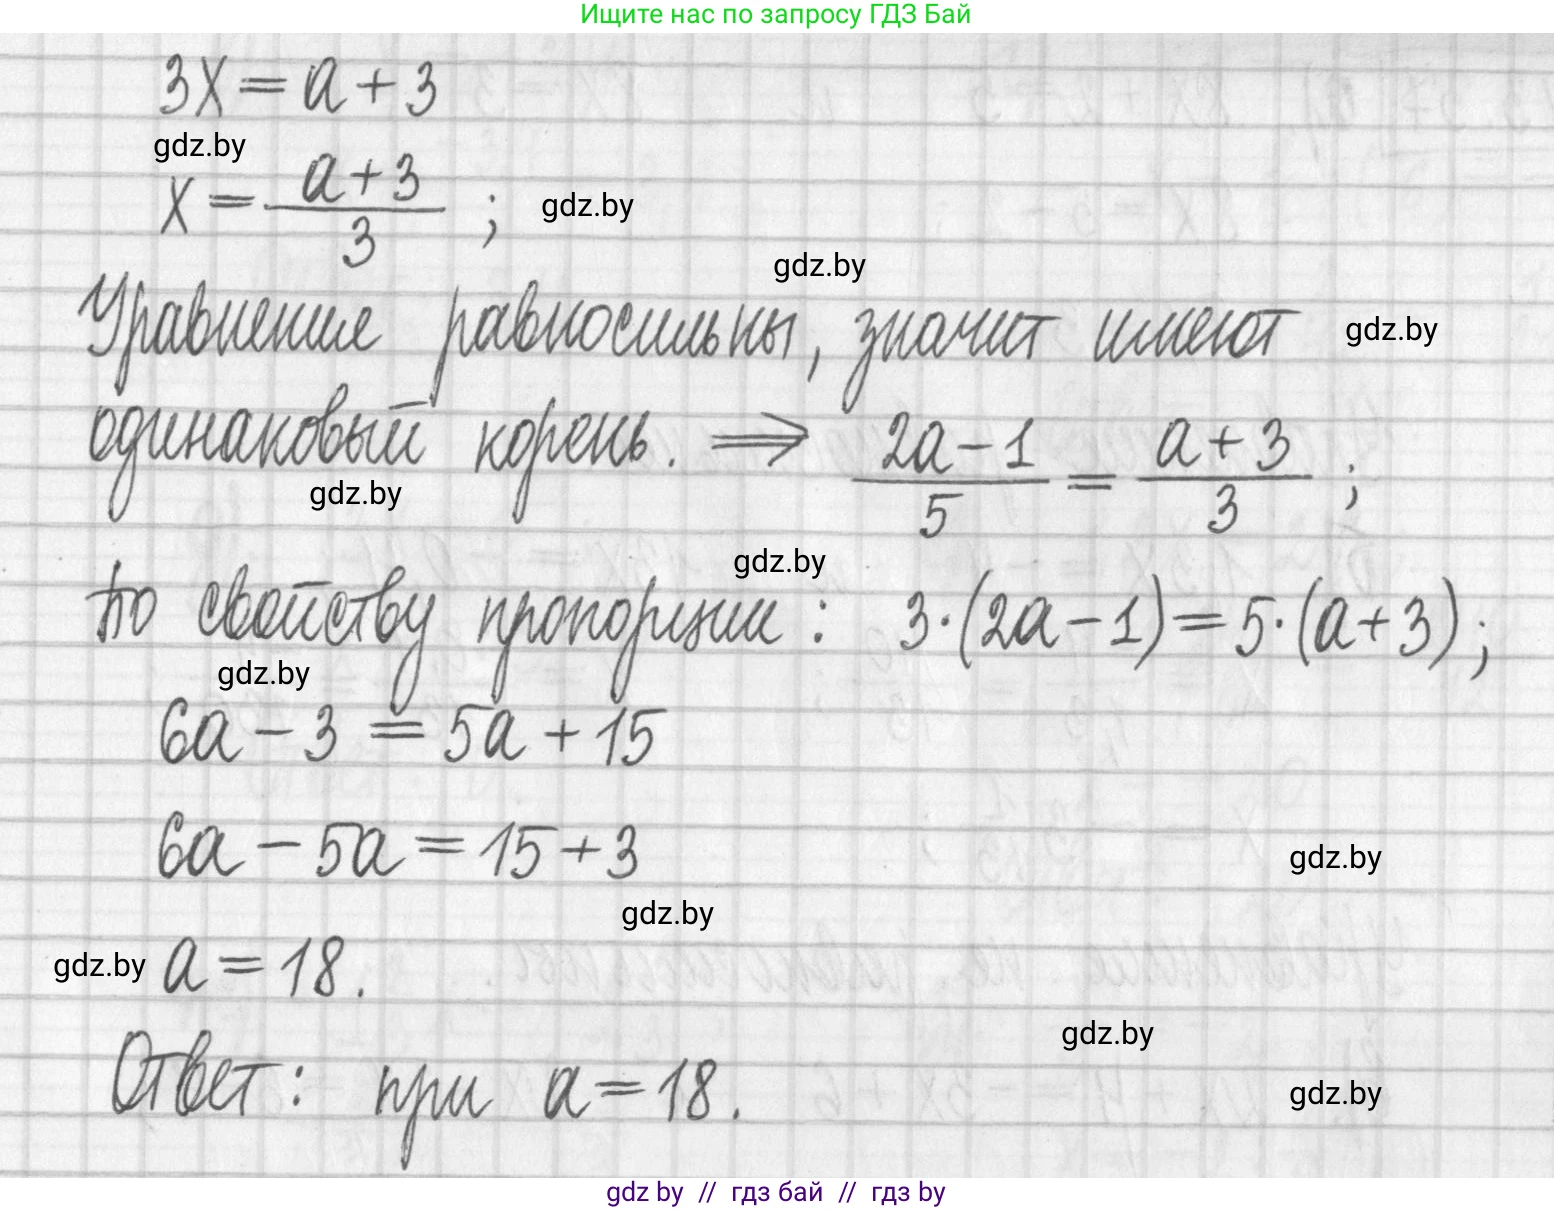 Ищите нас по запросу ГДЗ Бай
3x = a + 3
gdz.by
x = \frac{a+3}{3} ; gdz.by
gdz.by
Уравнения равносильны, значит имеют gdz.by
одинаковый корень. ⟹ \frac{2a-1}{5} = \frac{a+3}{3} ;
gdz.by
gdz.by
По свойству пропорции : 3·(2a-1)=5·(a+3) ;
gdz.by
6a - 3 = 5a + 15
6a - 5a = 15 + 3
gdz.by
gdz.by
gdz.by a = 18.
gdz.by
Ответ: при a = 18.
gdz.by
gdz by // гдз бай // гдз by